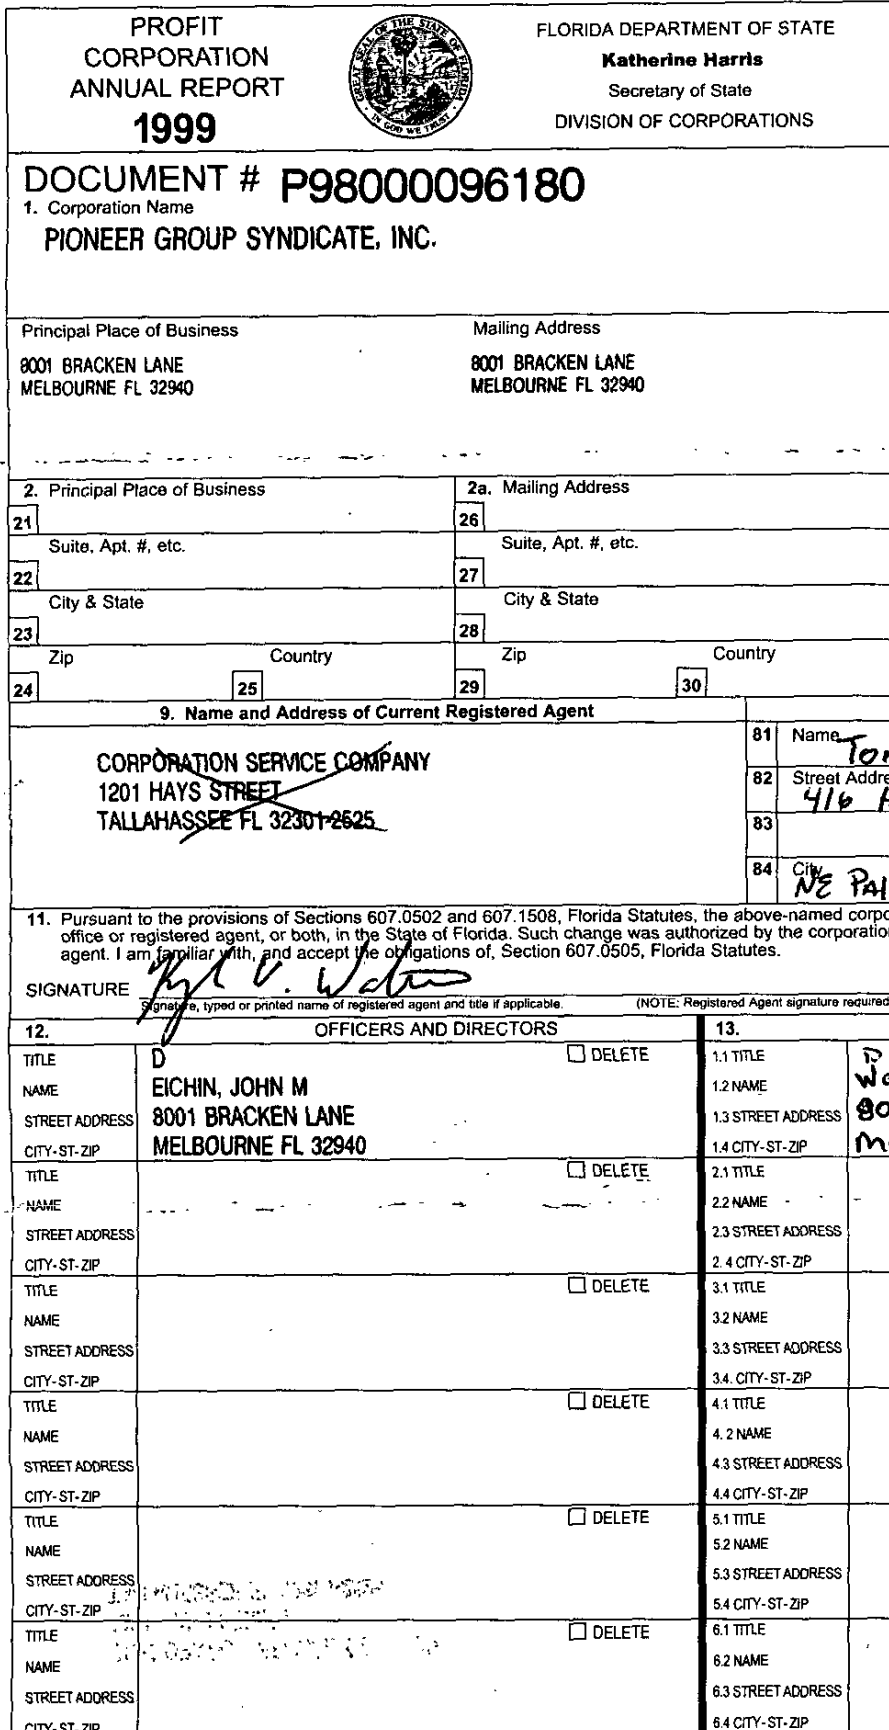 PROFIT
CORPORATION
ANNUAL REPORT
1999
GREAT SEAL OF THE STATE OF FLORIDA
IN GOD WE TRUST
FLORIDA DEPARTMENT OF STATE
Katherine Harris
Secretary of State
DIVISION OF CORPORATIONS
DOCUMENT # P98000096180
1. Corporation Name
PIONEER GROUP SYNDICATE, INC.
Principal Place of Business
8001 BRACKEN LANE
MELBOURNE FL 32940
Mailing Address
8001 BRACKEN LANE
MELBOURNE FL 32940
2. Principal Place of Business
2a. Mailing Address
21
26
Suite, Apt. #, etc.
Suite, Apt. #, etc.
22
27
City & State
City & State
23
28
Zip
Country
Zip
Country
24
25
29
30
9. Name and Address of Current Registered Agent
CORPORATION SERVICE COMPANY
1201 HAYS STREET
TALLAHASSEE FL 32301-2525
81 Name
82 Street Addre
416
83
84 City
NE PAl
11. Pursuant to the provisions of Sections 607.0502 and 607.1508, Florida Statutes, the above-named corpo
office or registered agent, or both, in the State of Florida. Such change was authorized by the corporatio
agent. I am familiar with, and accept the obligations of, Section 607.0505, Florida Statutes.
SIGNATURE
Signature, typed or printed name of registered agent and title if applicable.
(NOTE: Registered Agent signature required
12. OFFICERS AND DIRECTORS
13.
TITLE D DELETE
NAME EICHIN, JOHN M
STREET ADDRESS 8001 BRACKEN LANE
CITY-ST-ZIP MELBOURNE FL 32940
1.1 TITLE D
1.2 NAME
1.3 STREET ADDRESS 80
1.4 CITY-ST-ZIP M
TITLE DELETE
NAME
STREET ADDRESS
CITY-ST-ZIP
2.1 TITLE
2.2 NAME
2.3 STREET ADDRESS
2.4 CITY-ST-ZIP
TITLE DELETE
NAME
STREET ADDRESS
CITY-ST-ZIP
3.1 TITLE
3.2 NAME
3.3 STREET ADDRESS
3.4. CITY-ST-ZIP
TITLE DELETE
NAME
STREET ADDRESS
CITY-ST-ZIP
4.1 TITLE
4.2 NAME
4.3 STREET ADDRESS
4.4 CITY-ST-ZIP
TITLE DELETE
NAME
STREET ADDRESS
CITY-ST-ZIP
5.1 TITLE
5.2 NAME
5.3 STREET ADDRESS
5.4 CITY-ST-ZIP
TITLE DELETE
NAME
STREET ADDRESS
CITY-ST-ZIP
6.1 TITLE
6.2 NAME
6.3 STREET ADDRESS
6.4 CITY-ST-ZIP